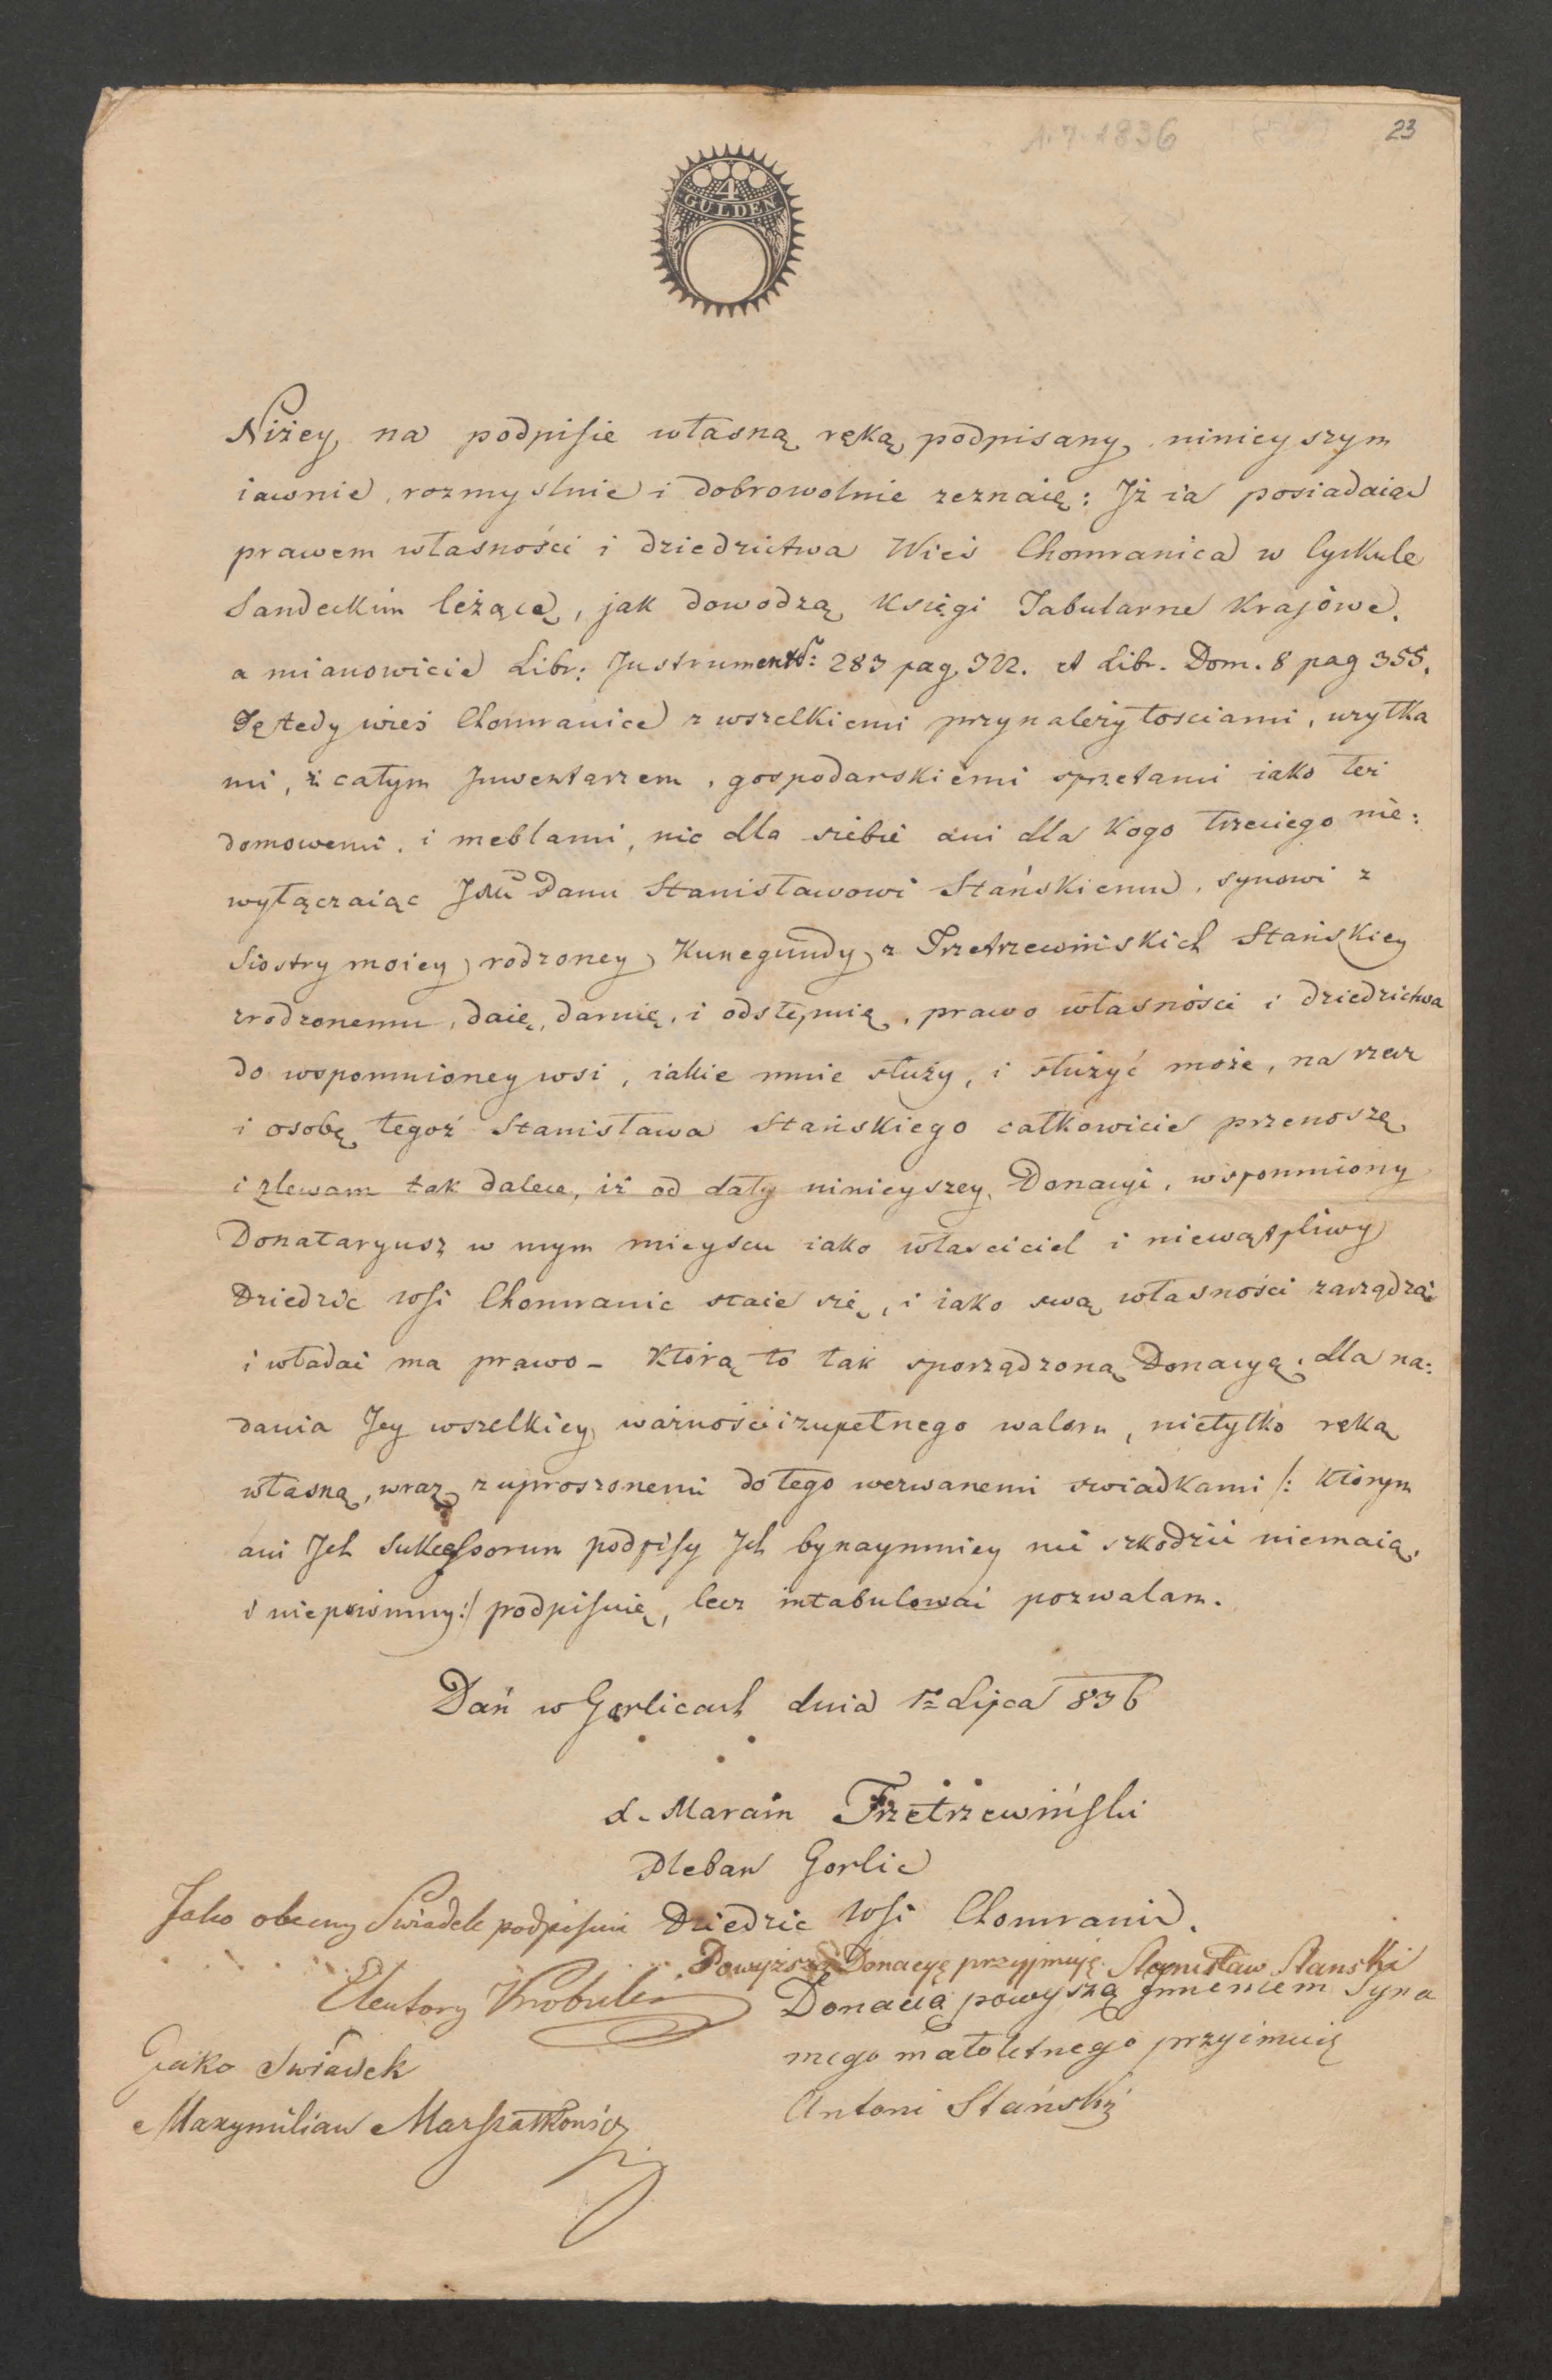 1.7.1836
23
4
GULDEN
Niżey na podpisie własną ręką podpisany ninieyszym
iawnie, rozmyslnie i dobrowolnie zeznaię: Jż ia posiadaiąc
prawem własności i dziedzictwa Wieś Chomranica w Cyrkule
Sandeckim leżącą, jak dowodzą Księgi Tabularne Krajowe.
a mianowicie Libr: Instrument: 283 pag 322. et Libr. Dom. 8 pag 355.
Tę tedy wieś Chomranice z wszelkiemi przynależytosciami, uzytka
mi, z całym Jnwentarzem, gospodarskiemi sprzetami iako też
domowemi, i meblami, nic dla siebie ani dla Kogo trzeciego nie:
wyłączaiąc JMu Panu Stanisławowi Stańskiemu, synowi z
Siostry moiey rodzoney Kunegundy z Trzetrzewińskich Stańskiey
zrodzonemu, daię, daruię, i odstępuię, prawo własności i dziedzictwa
do wspomnioney wsi, iakie mnie służy, i służyć może, na rzecz
i osobę tegoż Stanisława Stańskiego całkowicie przenoszę
i zlewam tak dalece, iż od daty ninieyszey Donacyi, wspomniony
Donataryusz w mym mieyscu iako własciciel i niewątpliwy
Dziedzic wsi Chomranic staie się, i iako swą własności zarządzać
i władać ma prawo - Którą to tak sporządzoną Donacyą, dla na:
dania Jey wszelkiey ważności i zupełnego waloru, nietylko ręką
własną, wraz z uproszonemi do tego wezwanemi swiadkami /: Którym
ani Jch Sukcessorum podpisy Jch bynaymniey nic szkodzić niemaią,
i niepowinny :/ podpisuię, lecz intabulować pozwalam.
Dań w Gorlicach dnia 1º Lipca 836
Trzetrzewiński
Pleban Gorlic
Jako obecny Swiadek podpisuie Dziedzic wsi Chomranic.
Powyższą Donacyę przyjmuję Stanisław Stanski
Donacią powyszą Jmieniem Syna
mego małoletnego przyimuię
Antoni Stański
Jako Swiadek
Maxymilian Marszałkowicz